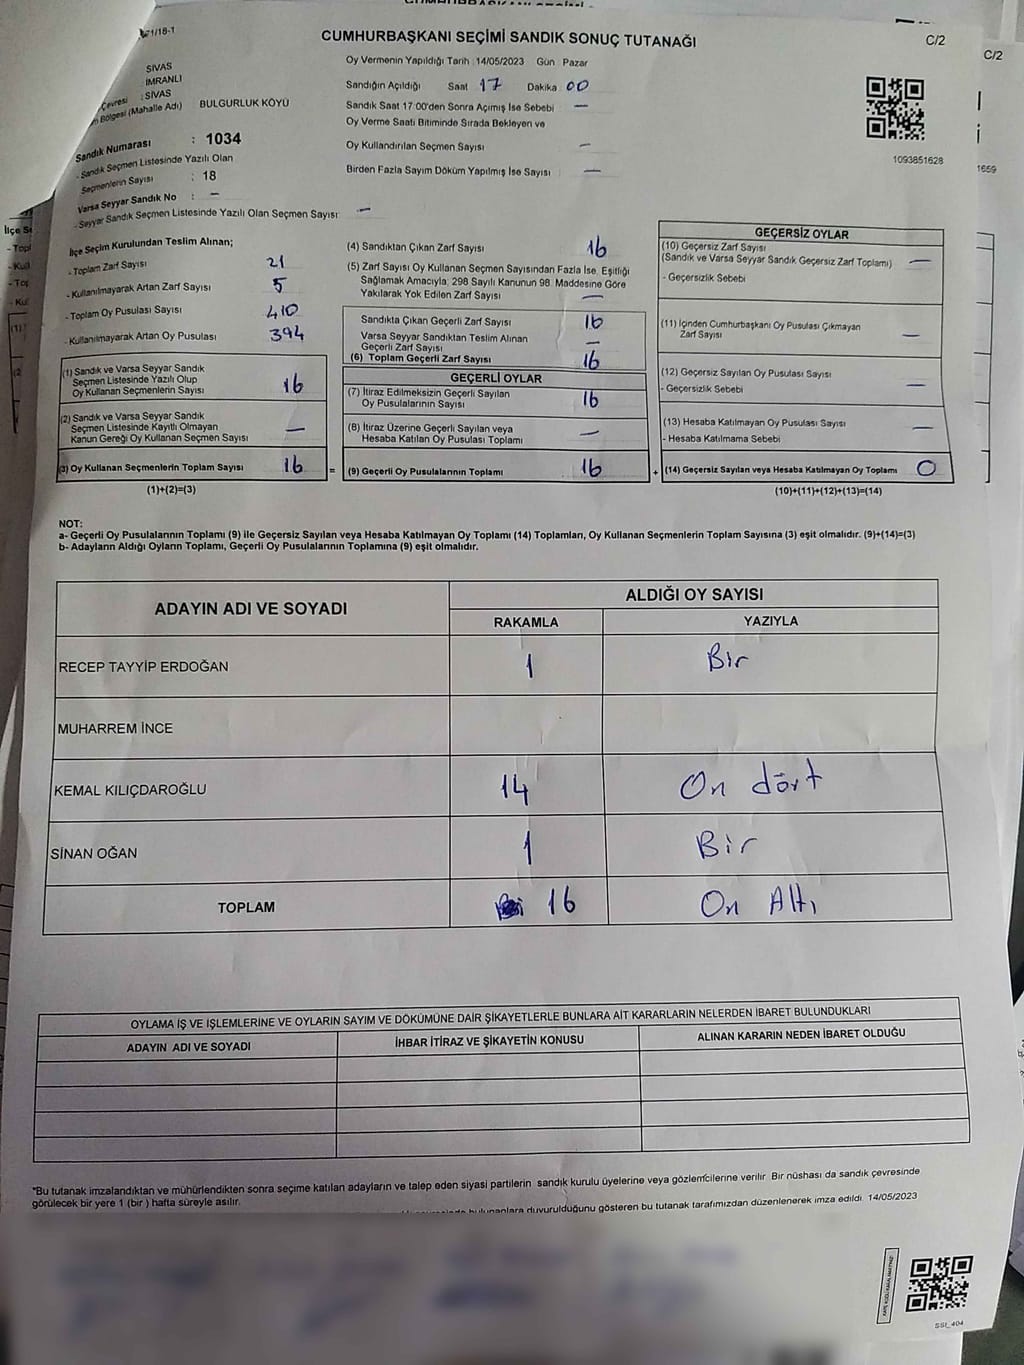 CUMHURBAŞKANI SEÇİMİ SANDIK SONUÇ TUTANAĞI
C/2
C/2
SİVAS
İMRANLI
Çevresi : SİVAS
Bölgesi (Mahalle Adı) BULGURLUK KÖYÜ
Sandık Numarası : 1034
- Sandık Seçmen Listesinde Yazılı Olan
Seçmenlerin Sayısı : 18
Varsa Seyyar Sandık No : –
- Seyyar Sandık Seçmen Listesinde Yazılı Olan Seçmen Sayısı: –
Oy Vermenin Yapıldığı Tarih : 14/05/2023 Gün Pazar
Sandığın Açıldığı Saat 17 Dakika 00
Sandık Saat 17:00'den Sonra Açımış İse Sebebi –
Oy Verme Saati Bitiminde Sırada Bekleyen ve
Oy Kullandırılan Seçmen Sayısı –
Birden Fazla Sayım Döküm Yapılmış İse Sayısı –
1093851628
1659
İlçe Seçim Kurulundan Teslim Alınan;
- Toplam Zarf Sayısı 21
- Kullanılmayarak Artan Zarf Sayısı 5
- Toplam Oy Pusulası Sayısı 410
- Kullanılmayarak Artan Oy Pusulası 394
(1) Sandık ve Varsa Seyyar Sandık
Seçmen Listesinde Yazılı Olup
Oy Kullanan Seçmenlerin Sayısı 16
(2) Sandık ve Varsa Seyyar Sandık
Seçmen Listesinde Kayıtlı Olmayan
Kanun Gereği Oy Kullanan Seçmen Sayısı –
(3) Oy Kullanan Seçmenlerin Toplam Sayısı 16 =
(1)+(2)=(3)
(4) Sandıktan Çıkan Zarf Sayısı 16
(5) Zarf Sayısı Oy Kullanan Seçmen Sayısından Fazla İse, Eşitliği
Sağlamak Amacıyla, 298 Sayılı Kanunun 98. Maddesine Göre
Yakılarak Yok Edilen Zarf Sayısı –
Sandıkta Çıkan Geçerli Zarf Sayısı 16
Varsa Seyyar Sandıktan Teslim Alınan
Geçerli Zarf Sayısı –
(6) Toplam Geçerli Zarf Sayısı 16
GEÇERLİ OYLAR
(7) İtiraz Edilmeksizin Geçerli Sayılan
Oy Pusulalarının Sayısı 16
(8) İtiraz Üzerine Geçerli Sayılan veya
Hesaba Katılan Oy Pusulası Toplamı –
(9) Geçerli Oy Pusulalarının Toplamı 16 +
GEÇERSİZ OYLAR
(10) Geçersiz Zarf Sayısı
(Sandık ve Varsa Seyyar Sandık Geçersiz Zarf Toplamı) –
- Geçersizlik Sebebi
(11) İçinden Cumhurbaşkanı Oy Pusulası Çıkmayan
Zarf Sayısı –
(12) Geçersiz Sayılan Oy Pusulası Sayısı
- Geçersizlik Sebebi –
(13) Hesaba Katılmayan Oy Pusulası Sayısı –
- Hesaba Katılmama Sebebi
(14) Geçersiz Sayılan veya Hesaba Katılmayan Oy Toplamı 0
(10)+(11)+(12)+(13)=(14)
NOT:
a- Geçerli Oy Pusulalarının Toplamı (9) ile Geçersiz Sayılan veya Hesaba Katılmayan Oy Toplamı (14) Toplamları, Oy Kullanan Seçmenlerin Toplam Sayısına (3) eşit olmalıdır. (9)+(14)=(3)
b- Adayların Aldığı Oyların Toplamı, Geçerli Oy Pusulalarının Toplamına (9) eşit olmalıdır.
ADAYIN ADI VE SOYADI
ALDIĞI OY SAYISI
RAKAMLA YAZIYLA
RECEP TAYYİP ERDOĞAN 1 Bir
MUHARREM İNCE
KEMAL KILIÇDAROĞLU 14 On dört
SİNAN OĞAN 1 Bir
TOPLAM 16 On Altı
OYLAMA İŞ VE İŞLEMLERİNE VE OYLARIN SAYIM VE DÖKÜMÜNE DAİR ŞİKAYETLERLE BUNLARA AİT KARARLARIN NELERDEN İBARET BULUNDUKLARI
ADAYIN ADI VE SOYADI İHBAR İTİRAZ VE ŞİKAYETİN KONUSU ALINAN KARARIN NEDEN İBARET OLDUĞU
*Bu tutanak imzalandıktan ve mühürlendikten sonra seçime katılan adayların ve talep eden siyasi partilerin sandık kurulu üyelerine veya gözlemcilerine verilir. Bir nüshası da sandık çevresinde
görülecek bir yere 1 (bir ) hafta süreyle asılır.
bulunanlara duyurulduğunu gösteren bu tutanak tarafımızdan düzenlenerek imza edildi. 14/05/2023
SSI_404